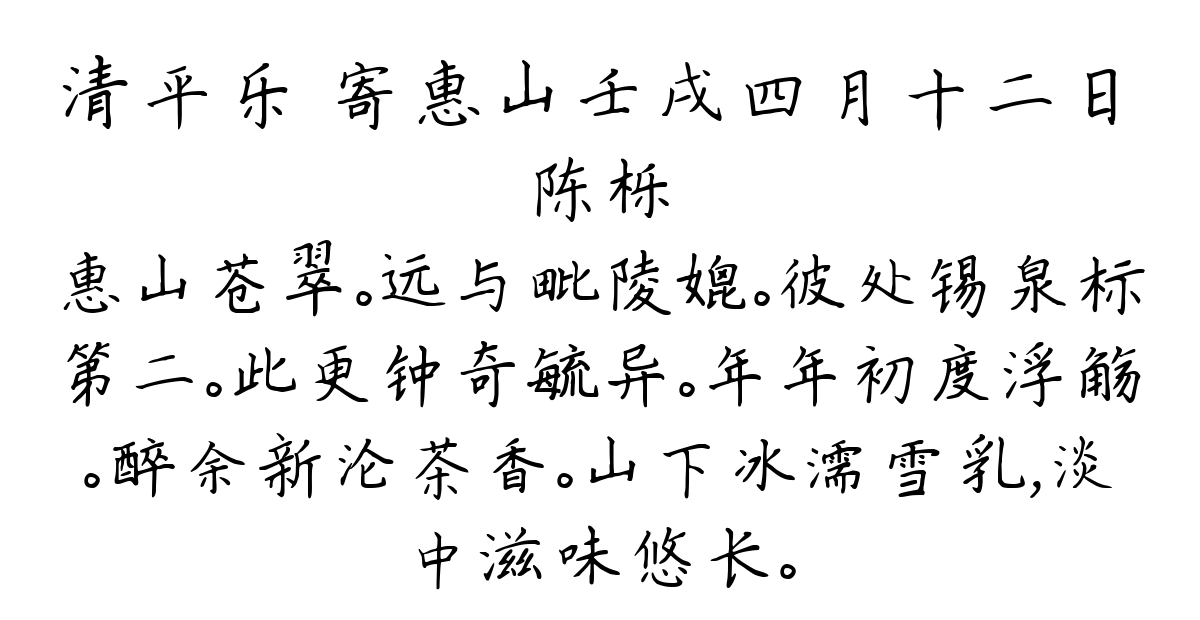 清平乐 寄惠山壬戌四月十二日
陈栎
惠山苍翠。远与毗陵媲。彼处锡泉标
第二。此更钟奇毓异。年年初度浮觞
。醉余新沦茶香。山下冰濡雪乳,淡
中滋味悠长。